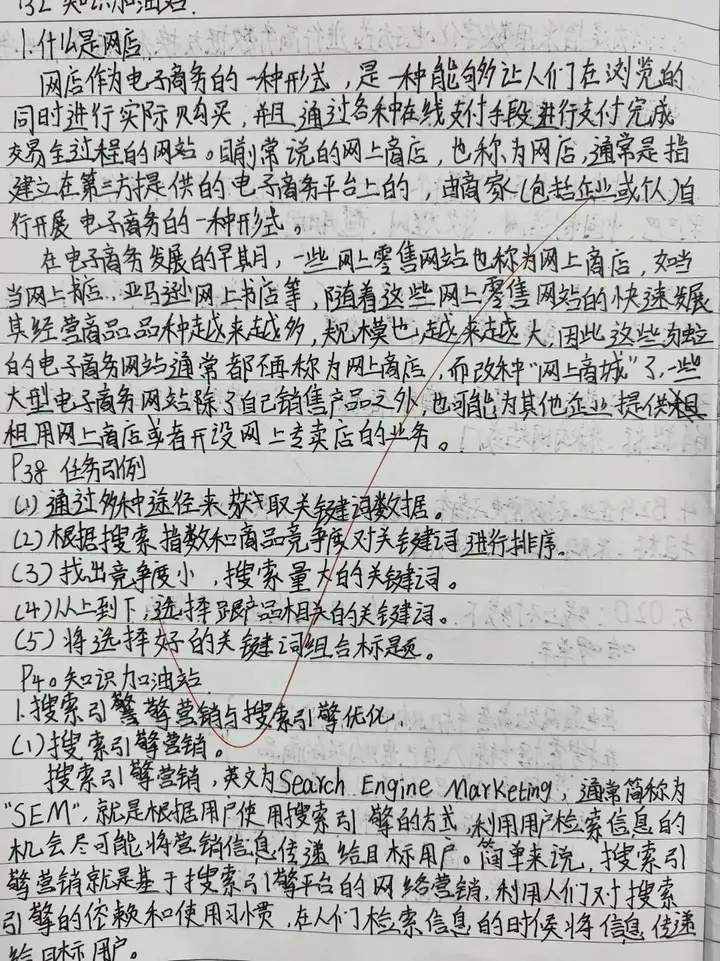 P32 知识加油站.
1.什么是网店.
网店作为电子商务的一种形式，是一种能够让人们在浏览的
同时进行实际购买，并且通过各种在线支付手段进行支付完成
交易全过程的网站。目前常说的网上商店，也称为网店，通常是指
建立在第三方提供的电子商务平台上的，由商家(包括企业或个人)自
行开展电子商务的一种形式。
在电子商务发展的早期，一些网上零售网站也称为网上商店，如当
当网上书店.亚马逊网上书店等，随着这些网上零售网站的快速发展
其经营商品品种越来越多，规模也越来越大，因此这些独立
的电子商务网站通常都不再称为网上商店，而改称"网上商城"了.一些
大型电子商务网站除了自己销售产品之外，也可能为其他企业提供
租用网上商店或者开设网上专卖店的业务。
P38 任务引例
(1)通过多种途径来获取关键词数据。
(2)根据搜索指数和商品竞争度对关键词进行排序。
(3)找出竞争度小，搜索量大的关键词。
(4)从上到下,选择跟产品相关的关键词。
(5)将选择好的关键词组合标题。
P40知识加油站.
1.搜索引擎营销与搜索引擎优化.
(1)搜索引擎营销。
搜索引擎营销，英文为Search Engine Marketing，通常简称为
"SEM"，就是根据用户使用搜索引擎的方式，利用用户检索信息的
机会尽可能将营销信息传递给目标用户。简单来说，搜索引
擎营销就是基于搜索引擎平台的网络营销，利用人们对搜索
引擎的依赖和使用习惯，在人们检索信息的时候将信息传递
给目标用户。